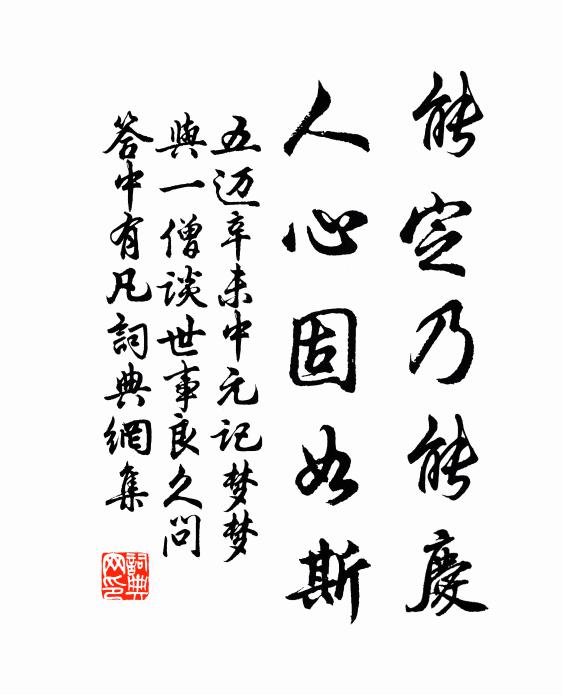 能定乃能慶
人心固如斯
五迈辛未中元记梦梦
與一僧谈世事良久问
答中有凡詞典網集
詞典网印